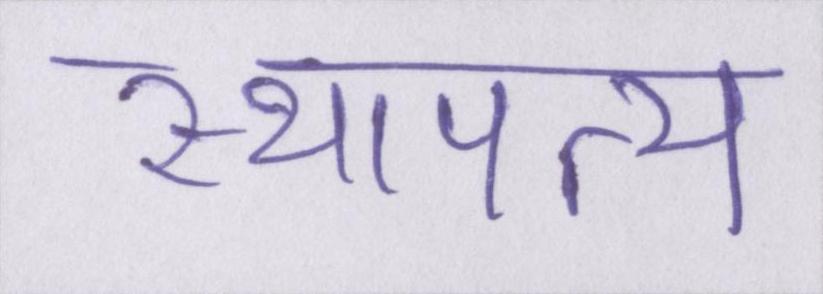 स्थापत्य